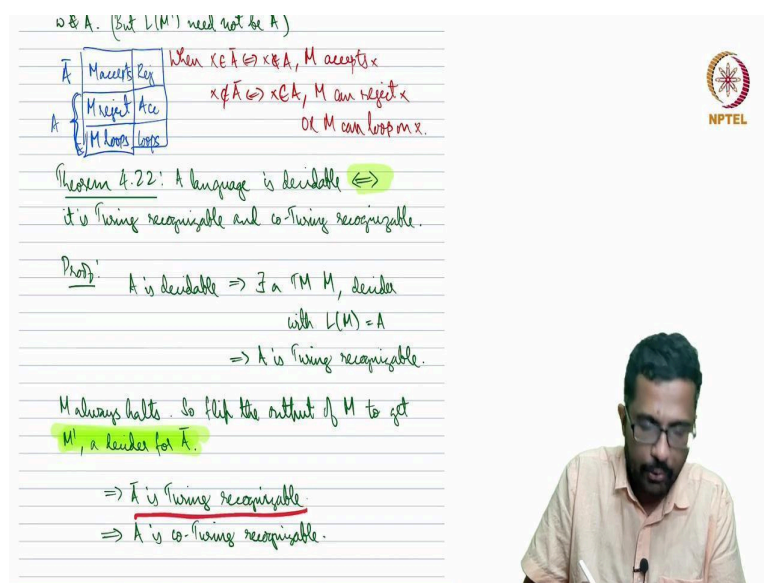 w ∉ A. (But L(M') need not be A)
Ā | M accepts | Rej
A { M reject | Acc
M loops | loops
When x ∈ Ā ⇔ x ∉ A, M accepts x
x ∉ Ā ⇔ x ∈ A, M can reject x
OR M can loop on x.
NPTEL
Theorem 4.22: A language is decidable ⇔
it is Turing recognizable and co-Turing recognizable.
Proof: A is decidable ⇒ ∃ a TM M, decider
with L(M) = A
⇒ A is Turing recognizable.
M always halts. So flip the output of M to get
M', a decider for Ā.
⇒ Ā is Turing recognizable.
⇒ A is co-Turing recognizable.